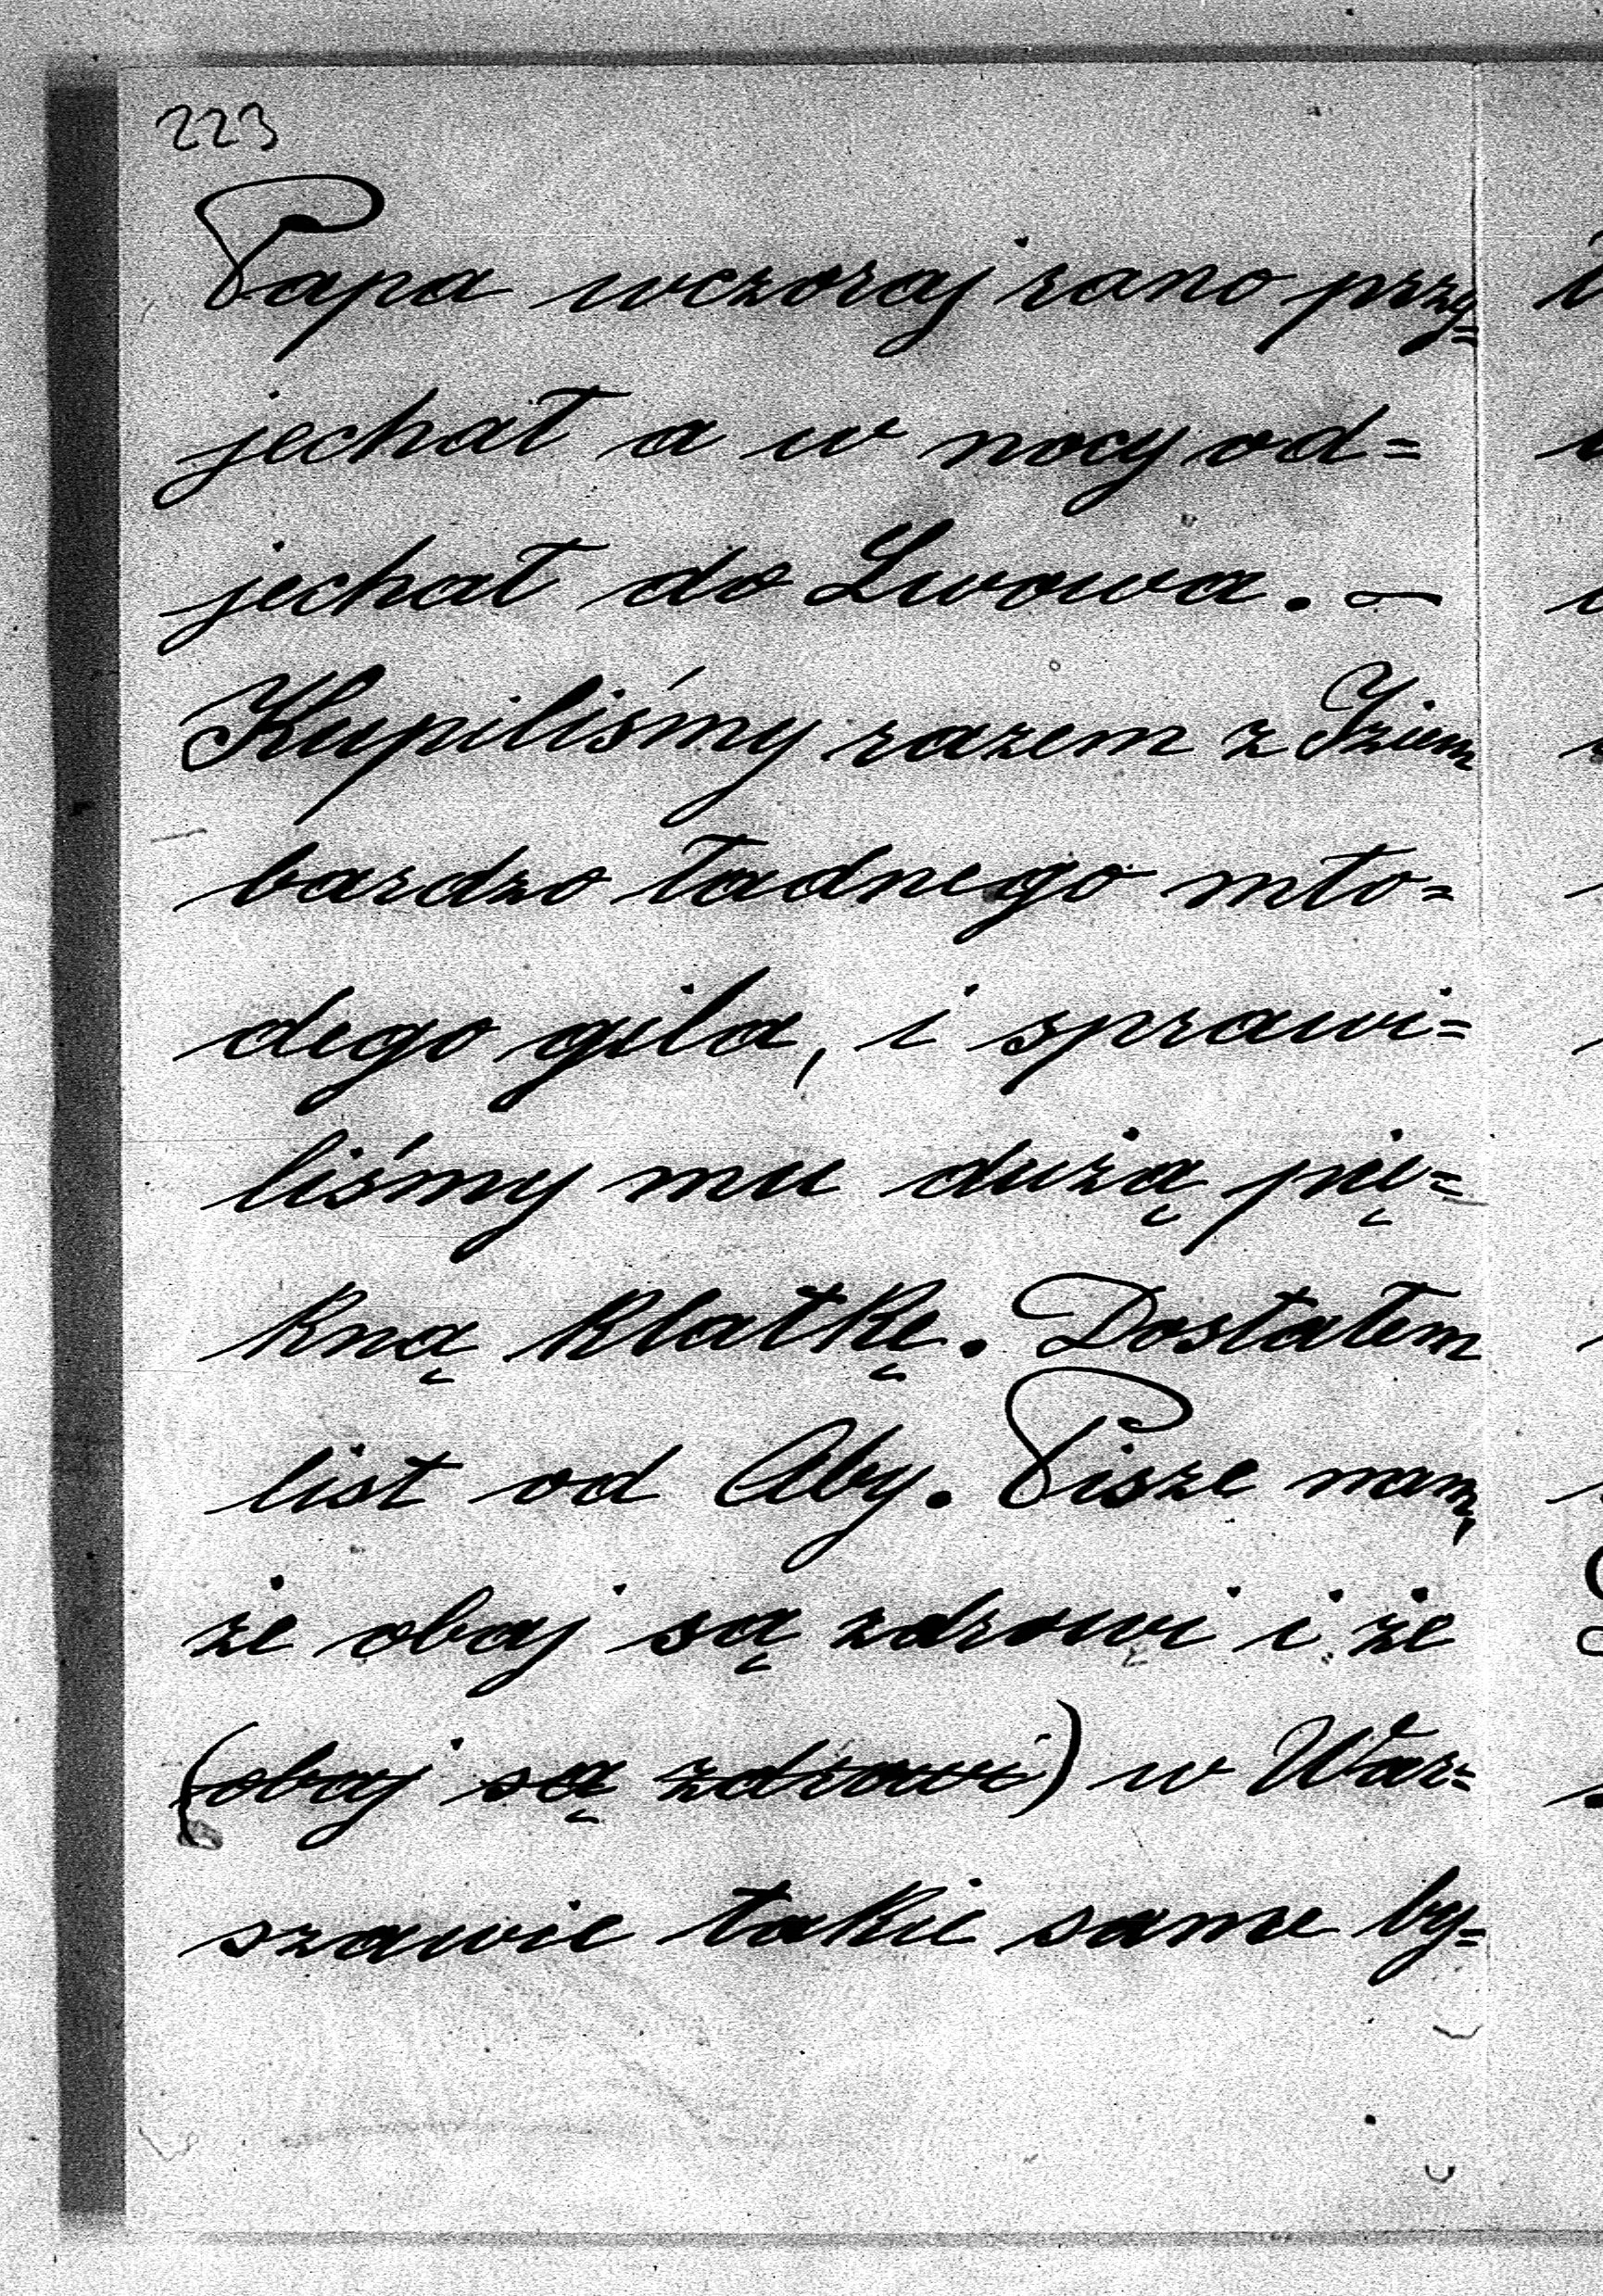 223
Papa wczoraj rano przy=
jechał a w nocy od=
jechał do Lwowa. —
Kupiliśmy razem z Iziem
bardzo ładnego mło=
dego gila, i sprawi=
liśmy mu dużą pię=
kną klatkę. Dostałem
list od Aby. Pisze nam,
że obaj są zdrowi i że
(obaj są zdrowi) w War=
szawie takie same by=